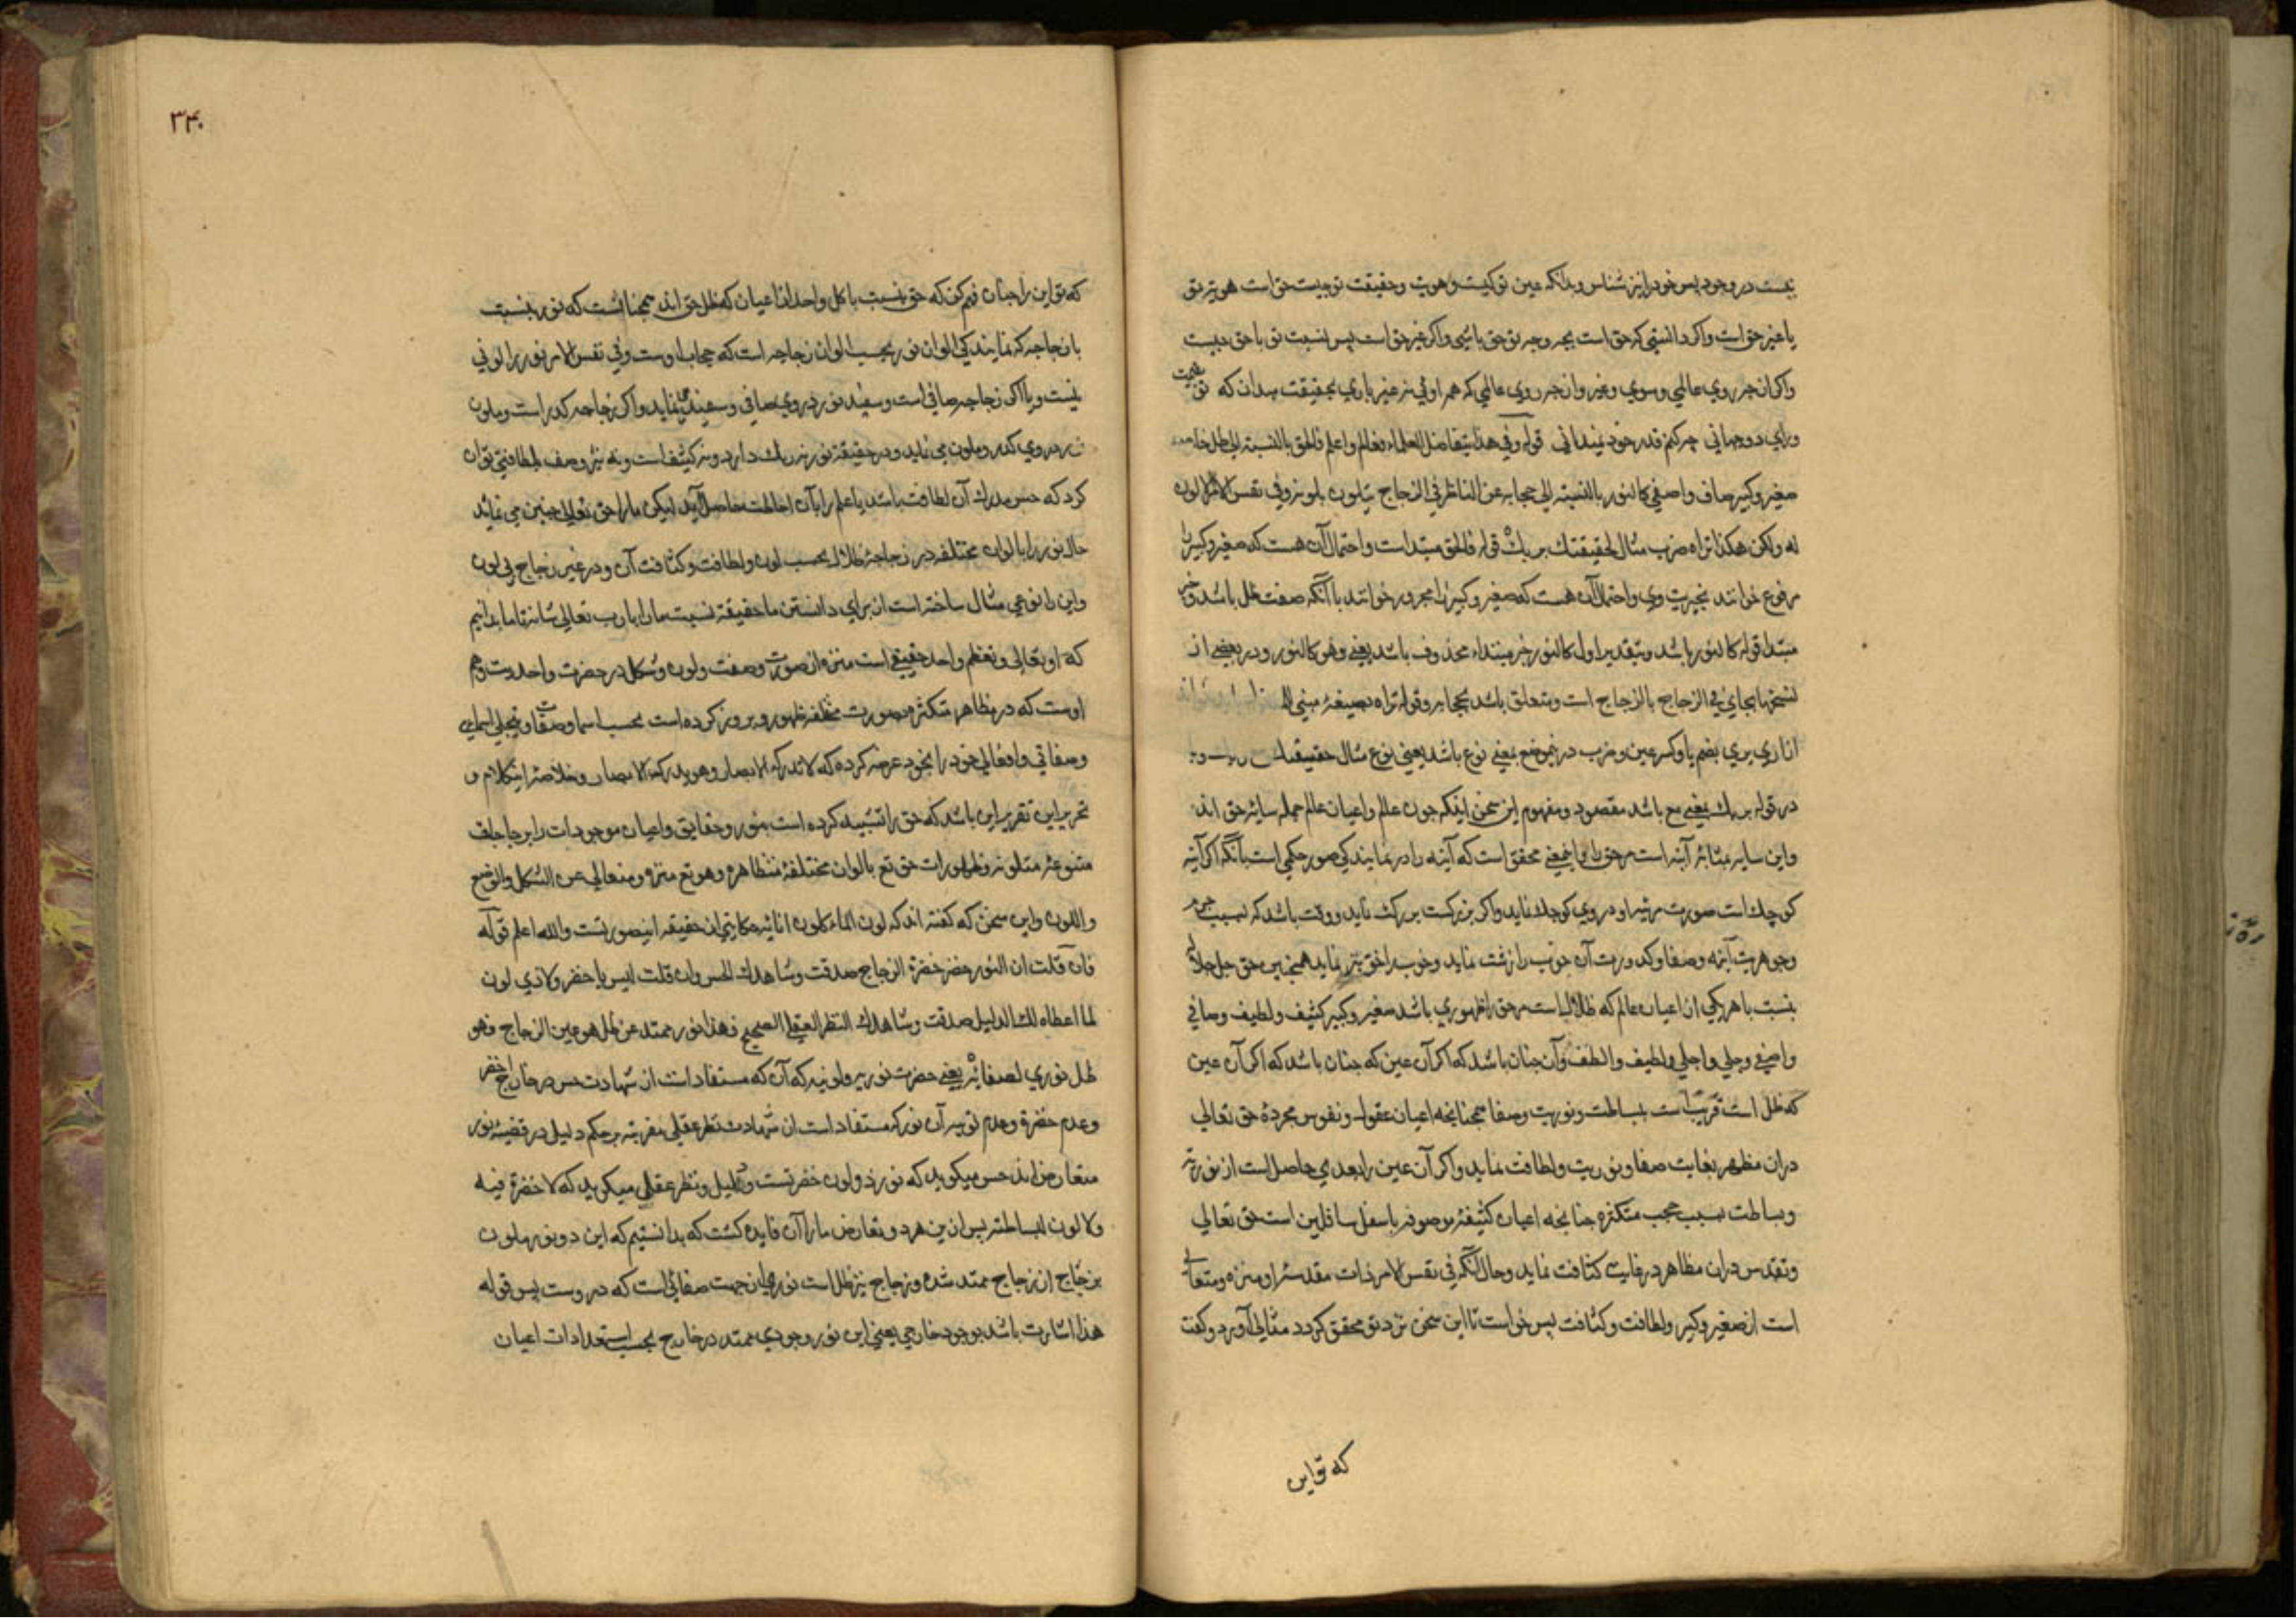 نیست در وجود پس خود را نیز شناس و بدانکه عین تو کیست و هویت و حقیقت تو چیست حق است هویت تو
یا غیر حق است و اگر دانستی که حق است بچه وجه تو حق باشی و اگر غیر حق است پس نسبت تو با حق چیست
واگر از چه روی عالمی و سوی و غیر و از چه روی عالمی که هم اوئی نه غیر باری بحقیقت بدان که تو بقیمت
ورای دو جهانی چه کنم قدر خود نمیدانی قوله وفی هذا یتفاضل العلماء فعالم واعلم فالحق بالنسبة الی ظل خاص
صغیر وکبیر صاف واصفی کالنور بالنسبة الی حجابه عن الناظر فی الزجاج یتلون بلونه وفی نفس الامر لا لون
له ولکن هکذا تراه ضرب مثال لحقیقتك بربك قوله فالحق مبتدا است و احتمال آن هست که صغیر و کبیر را
مرفوع خوانند بخبریت وی و احتمال آن هست که صغیر و کبیر را مجرور خوانند با آنکه صفت ظل باشد و خبر
مبتدا قوله کالنور باشد و بتقدیر اول کالنور خبر مبتداء محذوف باشد یعنی وهو کالنور و در بعضی از
نسخها بجای فی الزجاج بالزجاج است و متعلق باشد بحجابه و قوله تراه بصیغهٔ مبنی
از اری یری بضم یا و کسر عین و ضرب درین موضع بمعنی نوع باشد یعنی نوع مثال حقیقتك
در قوله بربك بمعنی مع باشد مقصود و مفهوم این سخن اینکه چون عالم و اعیان عالم جمله سایهٔ حق اند
واین سایه بمثابهٔ آینه است مر حق را و این معنی محقق است که آینه را در نمایندگی صور حکمی است بآنکه اگر آینه
کوچك است صورت مرئیه او در وی کوچك نماید و اگر بزرگست بزرگ نماید و وقت باشد که بسبب جرم
وجوهریت آینه و صفا و کدورت آن خوب را زشت نماید و خوب را خوبتر نماید همچنین حق جل جلاله
بنسبت با هر یکی از اعیان عالم که ظلال است مر حق را ظهوری باشد صغیر و کبیر کثیف و لطیف و صافی
واصفی و جلی و اجلی و لطیف و الطف و آن چنان باشد که اگر آن عین که چنان باشد که اگر آن عین
که ظل است قریب است ببساطت و نوریت و صفا همچنانچه اعیان عقول و نفوس مجردهٔ حق تعالی
در ان مظهر بغایت صفا و نوریت و لطافت نماید و اگر آن عین را بعدی حاصل است از نوریت
و بساطت بسبب حجب متکثره چنانچه اعیان کثیفهٔ موصوفه باسفل سافلین است حق تعالی
وتقدس در ان مظاهر در غایت کثافت نماید و حال آنکه فی نفس الامر ذات مقدسهٔ او منزه و متعالی
است از صغیر و کبیر و لطافت و کثافت پس خواست تا این سخن نزد تو محقق گردد مثالی آورد و گفت
که تو این
۳۴۰
که تو این را چنان فهم کن که حق بنسبت با کل واحد از اعیان که ظل حق اند همچنانست که نور بنسبت
با زجاجه که نمایندگی الوان نور بحسب الوان زجاجه است که حجاب اوست وفی نفس الامر نور را لونی
نیست و یا اگر زجاجه صافی است و سفید نور در وی صافی و سفید می نماید و اگر زجاجه کدر است و ملون
نور در وی کدر و ملون می نماید و در حقیقة نور نه رنك دارد و نه کثیف است و نه نیز وصف بلطافتی توان
کرد که حس مدرك آن لطافت باشد یا علم را بآن احاطت حاصل آید لیکن ما را حق تعالی چنین می نماید
حال نور را بالوان مختلفه در زجاجهٔ ظلال بحسب لون و لطافت و کثافت آن و در غیر زجاج بی لون
واین را نوعی مثال ساخته است از برای دانستن ما حقیقة نسبت ما را با رب تعالی شانه تا ما بدانیم
که او تعالی و تعظم واحد حقیقی است منزه از صورت و صفت و لون و شکل در حضرت واحدیت و هم
اوست که در مظاهر متکثره بصورت مختلفه ظهور و بروز کرده است بحسب اسما و صفات و بتجلی اسمائی
وصفاتی و افعالی خود را بخود عرضه کرده که لا تدرکه الابصار وهو یدرك الابصار و خلاصهٔ این کلام و
تحریر این تقریر این باشد که حق را تشبیه کرده است بنور و حقایق و اعیان موجودات را بزجاجات
متنوعهٔ متلونه و ظهورات حق تع بالوان مختلفهٔ متظاهره وهو تع منزه و متعالی عن الشکل والوضع
واللون واین سخن که گفته اند که لون الماء لون انائه حکایتی از حقیقه اینصورتست والله اعلم قوله
فان قلت ان النور اخضر لخضرة الزجاج صدقت وشاهدك الحس وان قلت لیس باخضر ولا ذی لون
لما اعطاه لك الدلیل صدقت وشاهدك النظر العقلی الصحیح فهذا نور ممتد عن ظل هو عین الزجاج فهو
ظل نوری لصفائه یعنی حضرت نوریه ولونیه که آن که مستفاد است از شهادت حس در خارج اخضر
وعدم خضرة وعدم لونیه آن نور که مستفاد است از شهادت نظر عقلی مقرینه بر حکم دلیل در قضیهٔ نور
متعارض اند حس میگوید که نور ذو لون خضرتست و دلیل و نظر عقلی میگوید که لا خضرة فیه
ولا لون لبساطته پس از بین هر دو تعارض ما را آن فایده گشت که بدانستیم که این دو نور ملون
بزجاج از زجاج ممتد شده و زجاج نیز ظل است نوری از جهت صفائی است که در وست پس قوله
هذا اشارت باشد بوجود خارجی یعنی این نور وجودی ممتد در خارج بحسب استعدادات اعیان